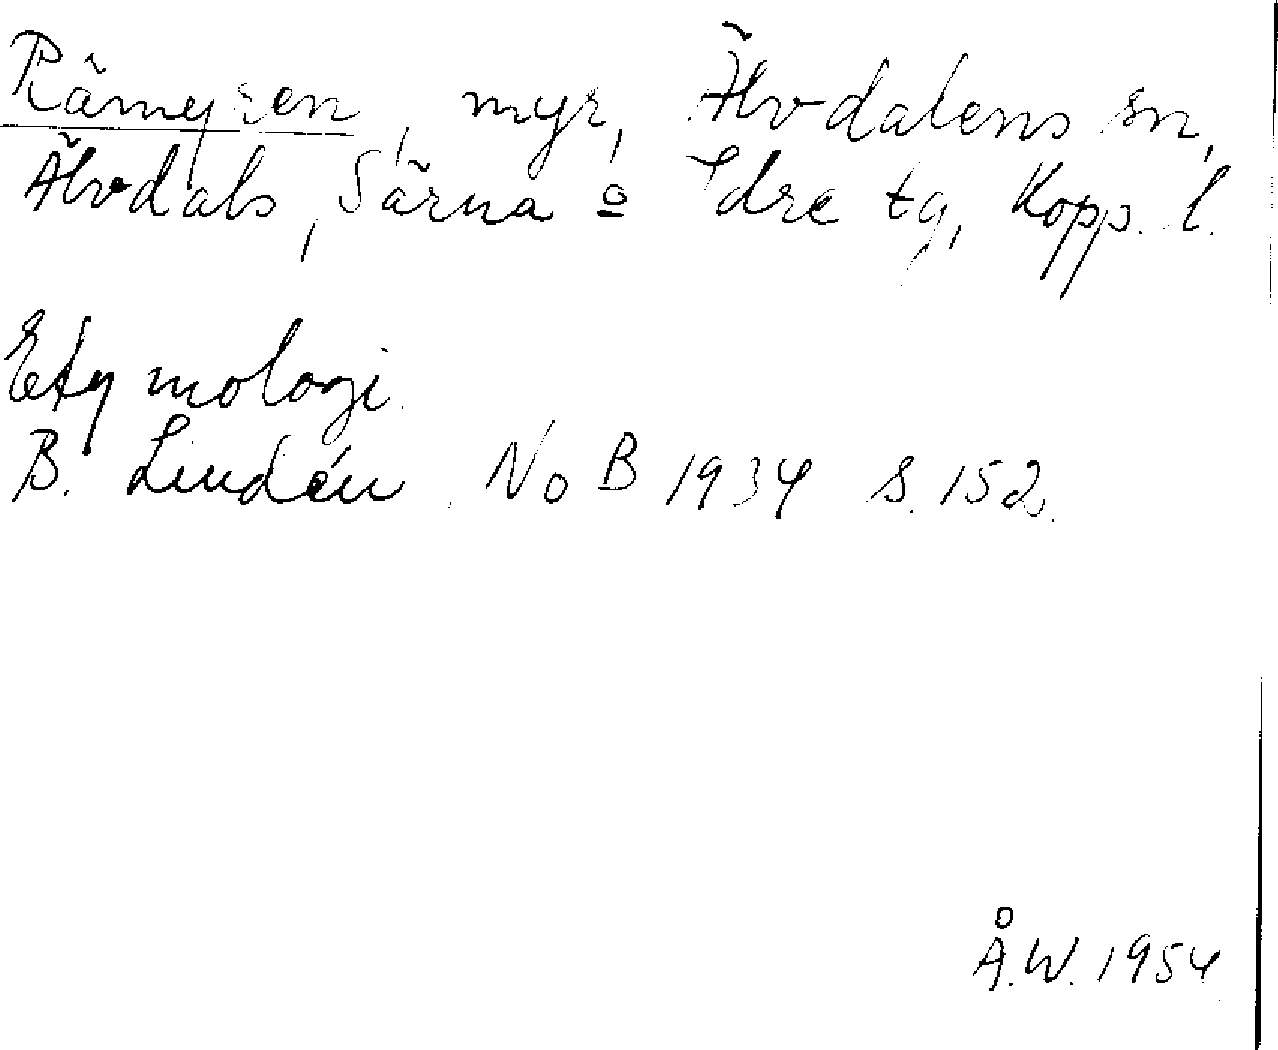 Rämyren, myr, Älvdalens sn,
Älvdals, Särna o Idre tg, Kopp. l.
Etymologi.
B. Lindén. NoB 1934 s. 152.
Å.W. 1954